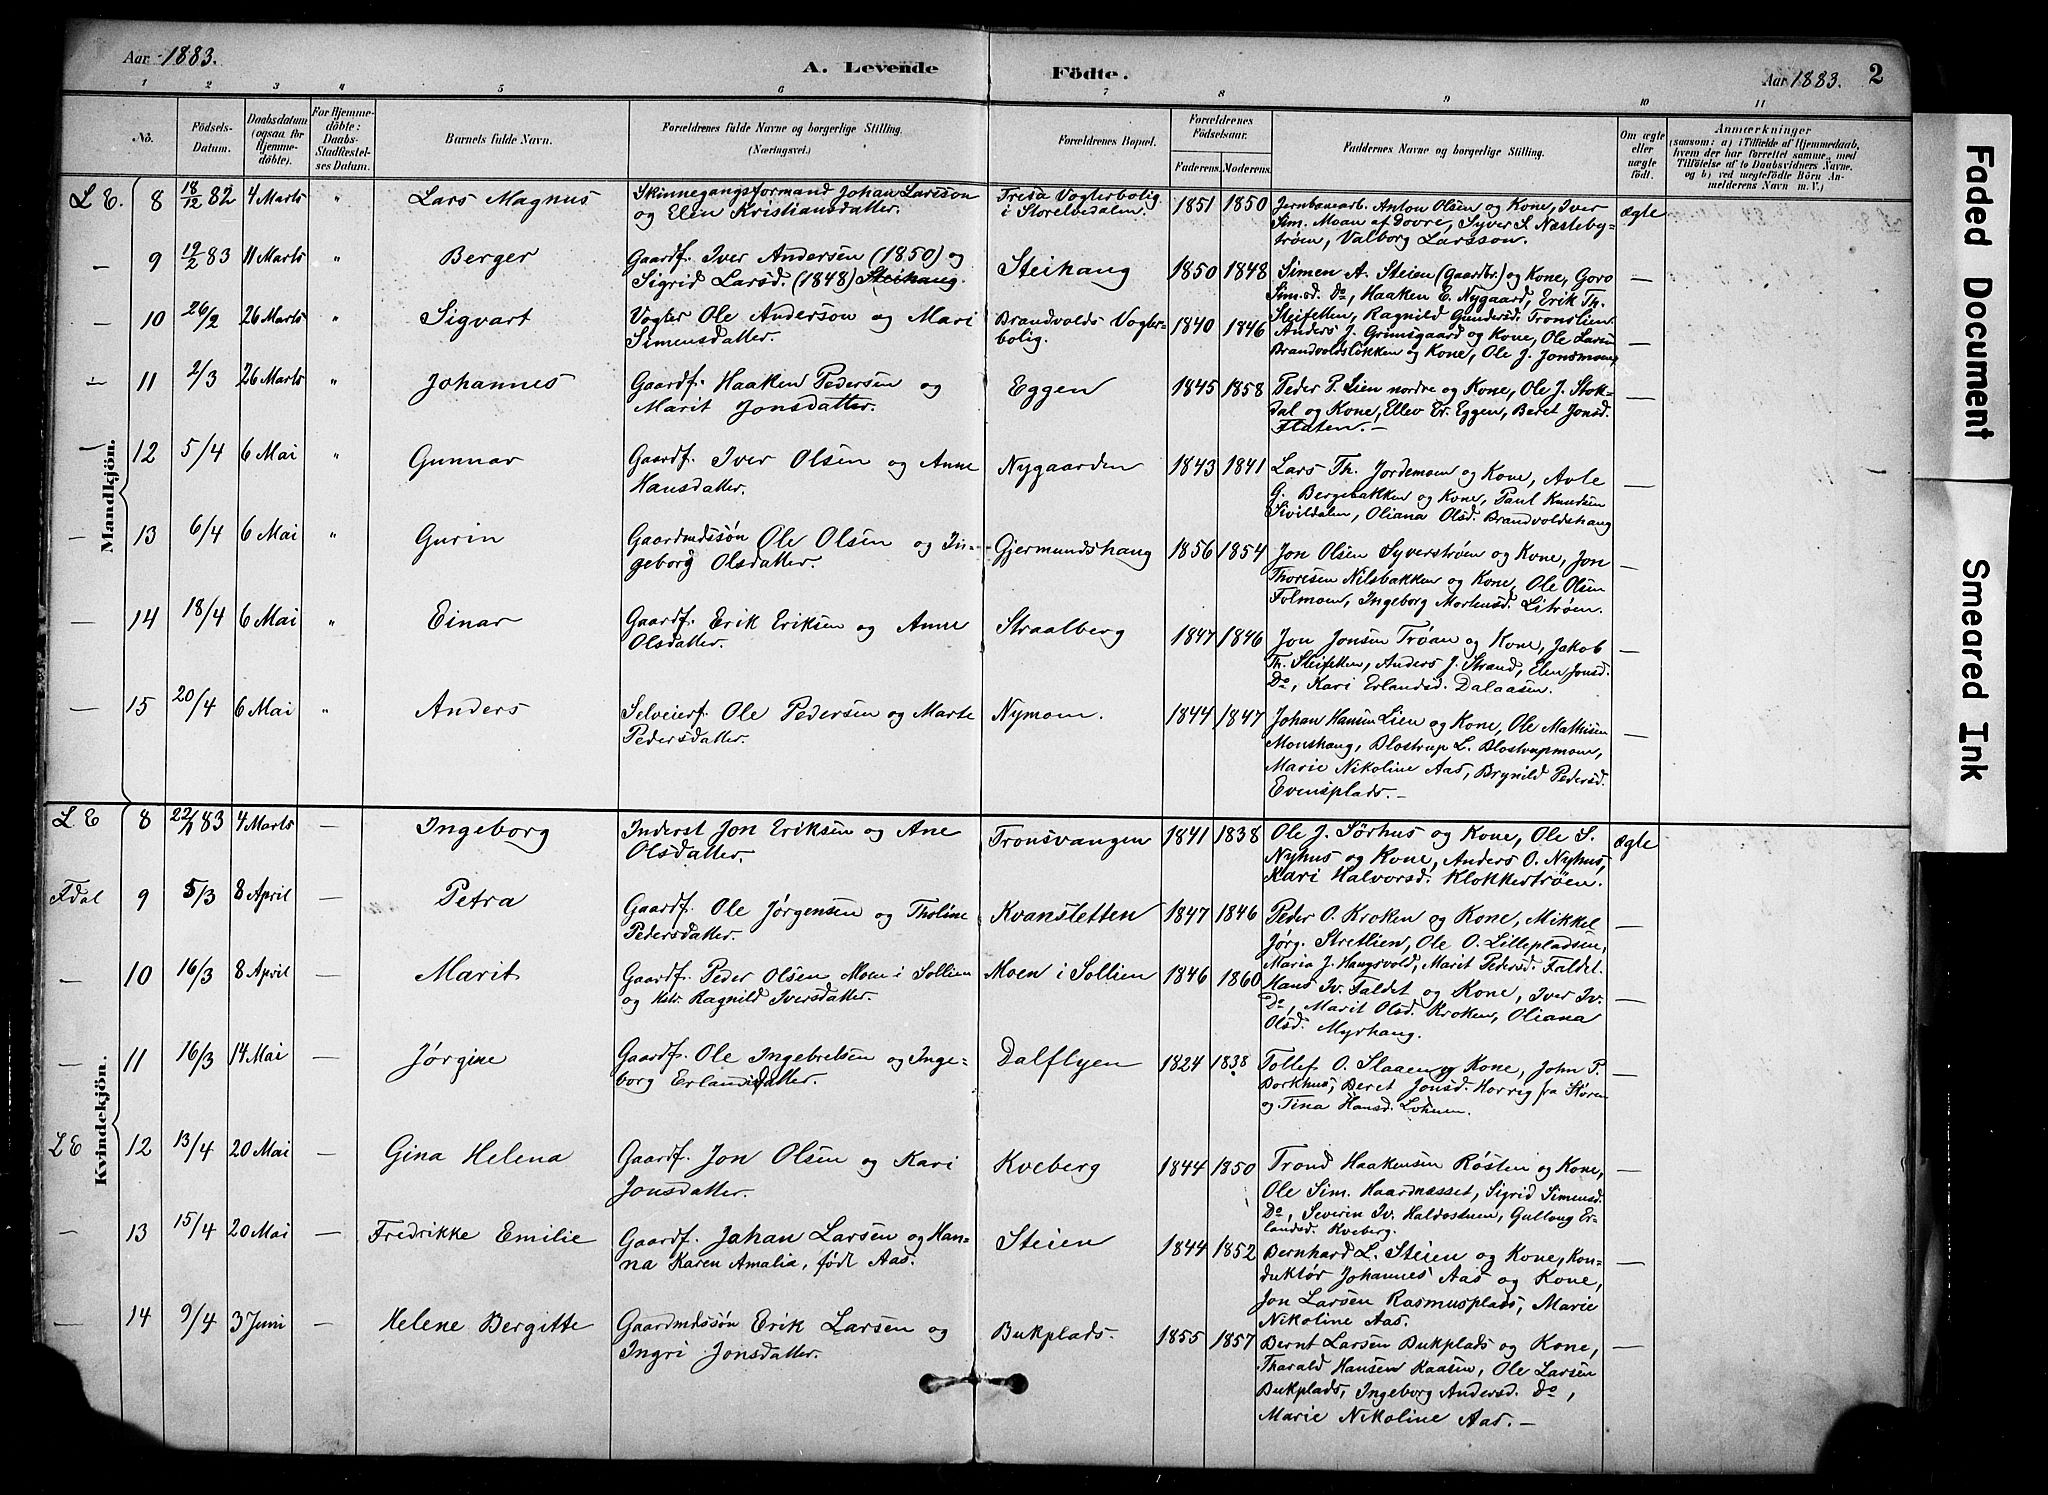 Aar 1883.
A. Levende Födte.
Aar 1883.
2
1 2 3 4 5 6 7 8 9 10 11
No.
Födsels-
Datum.
Daabsdatum
(ogsaa for
Hjemme-
döbte).
For Hjemme-
döbte:
Daabs-
Stadfæstel-
ses Datum.
Barnets fulde Navn.
Forældrenes fulde Navne og borgerlige Stilling.
(Næringsvei.)
Forældrenes Bopæl.
Forældrenes
Födselsaar.
Faderens. Moderens.
Faddernes Navne og borgerlige Stilling.
Om ægte
eller
uægte
födt.
Anmærkninger
(saasom: a) i Tilfælde af Hjemmedaab,
hvem der har forrettet samme, med
Tilföielse af to Daabsvidners Navne,
og b) ved uægtefödte Börn An-
melderens Navn m. V.)
Mandkjön.
L E. 8 18/12 82 4 Marts " Lars Magnus
Skinnegangsformand Johan Larsson
og Elen Kristiansdatter.
Tresa Vogterbolig
i Storelvedalen.
1851 1850
Jernbanearb. Anton Olsen og Kone, Iver
Sim. Moan af Dovre, Syver S. Næsteby-
trøen, Valborg Larsson.
Ægte
— 9 19/2 83 11 Marts " Berger
Gaardf. Iver Andersen (1850) og
Sigrid Larsd. (1848) Steihaug.
Steihaug
1850 1848
Simen A. Steien (Gaardbr.) og Kone, Goro
Sim.sd. Do, Haaken E. Nygaard, Erik Th.
Steifetten, Ragnild Gundersd. Tronslien.
—
— 10 26/2 26 Marts " Sigvart
Vogter Ole Anderson og Mari
Simensdatter.
Brandvolds Vogter-
bolig.
1840 1846
Anders J. Grimsgaard og Kone, Ole Larsen
Brandvoldsløkken og Kone, Ole J. Jonsmoen,
—
— 11 2/3 26 Marts " Johannes
Gaardf. Haaken Pedersen og
Marit Jonsdatter.
Eggen
1845 1858
Peder P. Lien nordre og Kone, Ole J. Stok-
dal og Kone, Ellev Er. Eggen, Beret Jonsd.
Flaten. —
—
— 12 5/4 6 Mai " Gunnar
Gaardf. Iver Olsen og Anne
Hansdatter.
Nygaarden
1843 1841
Lars Th. Jordemoen og Kone, Avle
G. Bergebakken og Kone, Paul Knudsen
Sivildalen, Oliana Olsd. Brandvoldshaug
—
— 13 6/4 6 Mai " Gurin
Gaardmdssøn Ole Olsen og In-
geborg Olsdatter.
Gjermundshaug
1856 1854
Jon Olsen Syverstrøen og Kone, Jon
Thoresen Nilsbakken og Kone, Ole Olsen
Folmoen, Ingeborg Mortensd. Litrøen.
—
— 14 18/4 6 Mai " Einar
Gaardf. Erik Eriksen og Anne
Olsdatter.
Straalberg
1847 1846
Jon Jonsen Trøan og Kone, Jakob
Th. Steifetten, Anders J. Strand, Elen Jonsd.
Do, Kari Erlandsd. Dalaasen.
—
— 15 20/4 6 Mai " Anders
Selveierf. Ole Pedersen og Marte
Pedersdatter.
Nymoen.
1844 1847
Johan Hansen Lien og Kone, Ole Mathisen
Monshaug, Blostrup L. Blostrupmoen,
Marie Nikoline Aas, Brynild Pedersd.
Evensplads. —
—
Kvindekjön.
L E 8 22/1 83 4 Marts — Ingeborg
Inderst Jon Eriksen og Ane
Olsdatter.
Tronsvangen
1841 1838
Ole J. Sørhus og Kone, Ole S.
Nyhus og Kone, Anders O. Nyhus,
Kari Halvorsd. Klokkertrøen.
Ægte
Fdal 9 5/3 8 April — Petra
Gaardf. Ole Jørgensen og Tholine
Pedersdatter.
Kvanstetten
1847 1846
Peder O. Kroken og Kone, Mikkel
Jørg. Stretlien, Ole O. Lillepladsen,
Maria J. Haugsvold, Marit Pedersd. Faldet.
—
— 10 16/3 8 April — Marit
Gaardf. Peder Olsen Moen i Sollien
og Hstr. Ragnild Iversdatter.
Moen i Sollien
1846 1860
Hans Iv. Faldet og Kone, Iver Iv.
Do, Marit Olsd. Kroken, Oliana
Olsd. Myrhaug.
—
— 11 16/3 14 Mai — Jørgine
Gaardf. Ole Ingebretsen og Inge-
borg Erlandsdatter.
Dalflyen
1824 1838
Tollef O. Slaaen og Kone, John P.
Borkhus, Beret Jonsd. Horrig fra Støren
og Tina Hansd. Lohnen.
—
L E 12 13/4 20 Mai — Gina Helena
Gaardf. Jon Olsen og Kari
Jonsdatter.
Kveberg
1844 1850
Trond Haakensen Røsten og Kone,
Ole Sim. Haardnæsset, Sigrid Simensd.
Do, Severin Iv. Haldostuen, Gullaug Er-
landsd. Kveberg.
—
— 13 15/4 20 Mai — Fredrikke Emilie
Gaardf. Johan Larsen og Han-
na Karen Amalia, født Aas.
Steien
1844 1852
Bernhard L. Steien og Kone, Kon-
duktør Johannes Aas og Kone,
Jon Larsen Rasmusplads, Marie
Nikoline Aas.
—
— 14 9/4 3 Juni — Helene Bergitte
Gaardmdssøn Erik Larsen og
Ingri Jonsdatter.
Bukplads.
1855 1857
Bernt Larsen Bukplads og Kone,
Tharald Hansen Kaasen, Ole Larsen
Bukplads, Ingeborg Andersd. Do,
Marie Nikoline Aas. —
—
Faded Document
Smeared Ink